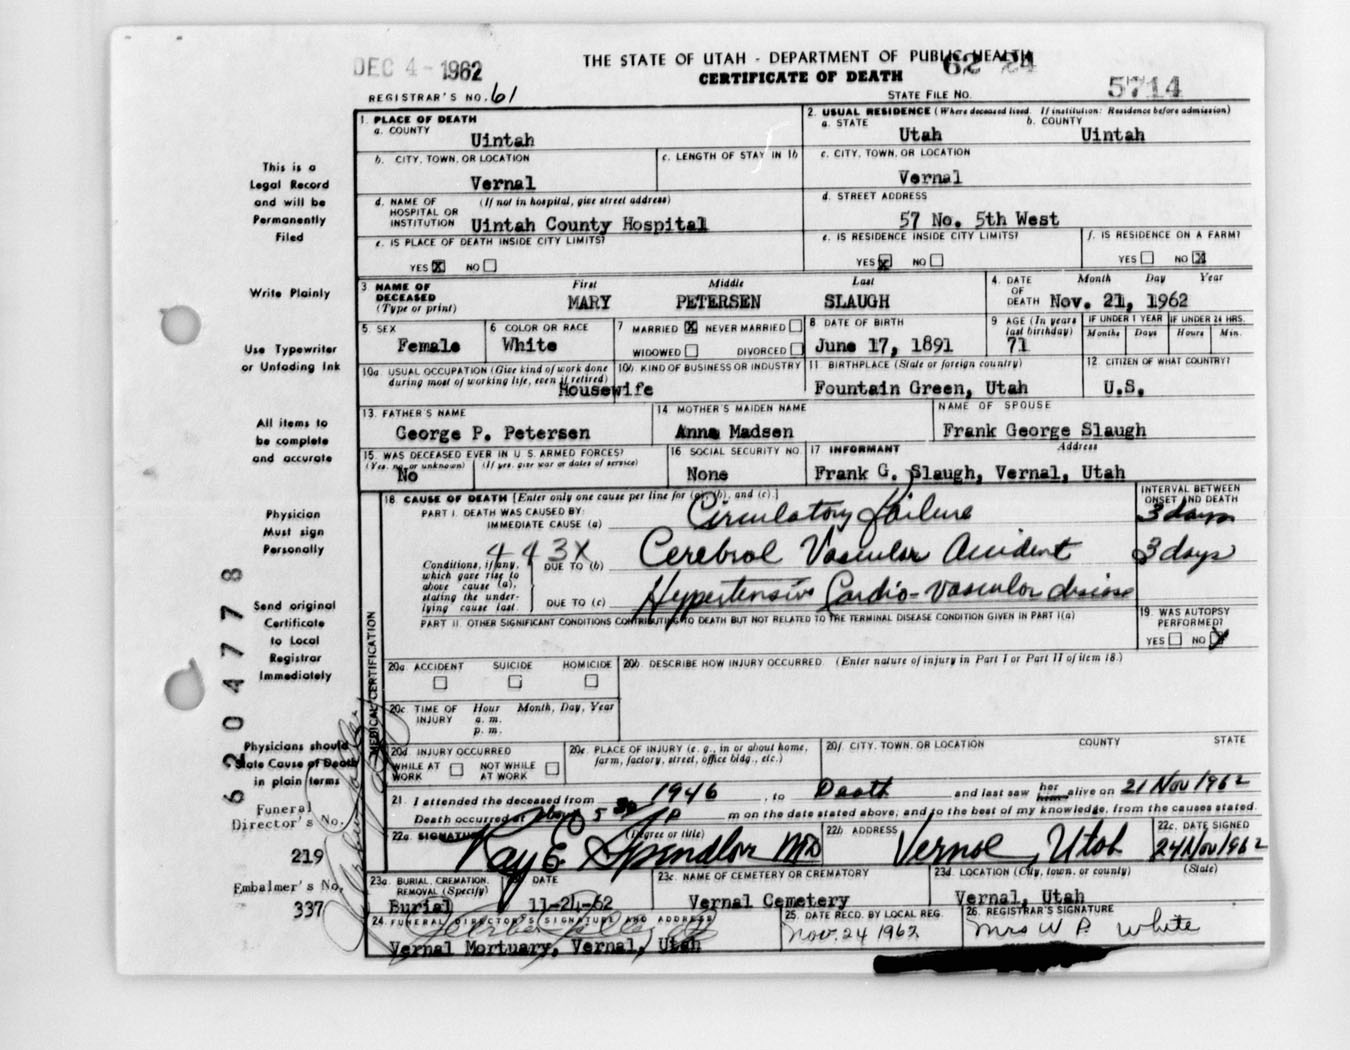 THE STATE OF UTAH - DEPARTMENT OF PUBLIC HEALTH
DEC 4 - 1962
62 24
CERTIFICATE OF DEATH
REGISTRAR'S NO. 61
STATE FILE NO. 5714
1. PLACE OF DEATH
a. COUNTY
Uintah
2. USUAL RESIDENCE (Where deceased lived. If institution: Residence before admission)
a. STATE b. COUNTY
Utah Uintah
b. CITY, TOWN, OR LOCATION
Vernal
c. LENGTH OF STAY IN 1b
c. CITY, TOWN, OR LOCATION
Vernal
d. NAME OF HOSPITAL OR INSTITUTION (If not in hospital, give street address)
Uintah County Hospital
d. STREET ADDRESS
57 No. 5th West
e. IS PLACE OF DEATH INSIDE CITY LIMITS?
YES X NO
e. IS RESIDENCE INSIDE CITY LIMITS?
YES X NO
f. IS RESIDENCE ON A FARM?
YES NO X
3 NAME OF DECEASED (Type or print)
First Middle Last
MARY PETERSEN SLAUGH
4. DATE OF DEATH Month Day Year
Nov. 21, 1962
5 SEX
Female
6 COLOR OR RACE
White
7 MARRIED X NEVER MARRIED
WIDOWED DIVORCED
8 DATE OF BIRTH
June 17, 1891
9 AGE (In years last birthday)
71
IF UNDER 1 YEAR IF UNDER 24 HRS.
Months Days Hours Min.
10a USUAL OCCUPATION (Give kind of work done during most of working life, even if retired)
Housewife
10b KIND OF BUSINESS OR INDUSTRY
11 BIRTHPLACE (State or foreign country)
Fountain Green, Utah
12 CITIZEN OF WHAT COUNTRY?
U.S.
13. FATHER'S NAME
George P. Petersen
14 MOTHER'S MAIDEN NAME
Anna Madsen
NAME OF SPOUSE
Frank George Slaugh
15 WAS DECEASED EVER IN U S. ARMED FORCES?
(Yes, no, or unknown) (If yes, give war or dates of service)
No
16 SOCIAL SECURITY NO.
None
17 INFORMANT Address
Frank G. Slaugh, Vernal, Utah
18 CAUSE OF DEATH [Enter only one cause per line for (a), (b), and (c).]
INTERVAL BETWEEN ONSET AND DEATH
PART I. DEATH WAS CAUSED BY:
IMMEDIATE CAUSE (a) Circulatory failure 3 days
443X
Conditions, if any, which gave rise to above cause (a), stating the underlying cause last.
DUE TO (b) Cerebral Vascular Accident 3 days
DUE TO (c) Hypertensive Cardio-vascular disease
PART II. OTHER SIGNIFICANT CONDITIONS CONTRIBUTING TO DEATH BUT NOT RELATED TO THE TERMINAL DISEASE CONDITION GIVEN IN PART I(a)
19. WAS AUTOPSY PERFORMED?
YES NO X
MEDICAL CERTIFICATION
20a ACCIDENT SUICIDE HOMICIDE
20b DESCRIBE HOW INJURY OCCURRED (Enter nature of injury in Part I or Part II of item 18.)
20c TIME OF INJURY Hour Month, Day, Year
a. m.
p. m.
20d INJURY OCCURRED
WHILE AT WORK NOT WHILE AT WORK
20e. PLACE OF INJURY (e. g., in or about home, farm, factory, street, office bldg., etc.)
20f. CITY, TOWN, OR LOCATION COUNTY STATE
21 I attended the deceased from 1946, to Death and last saw her him alive on 21 Nov 1962
Death occurred at 5 P m on the date stated above, and to the best of my knowledge, from the causes stated.
22a SIGNATURE (Degree or title)
Ray E Spendlove MD
22b ADDRESS
Vernal, Utah
22c. DATE SIGNED
24 Nov 1962
23a BURIAL, CREMATION, REMOVAL (Specify)
Burial
DATE
11-24-62
23c NAME OF CEMETERY OR CREMATORY
Vernal Cemetery
23d. LOCATION (City, town, or county) (State)
Vernal, Utah
24. FUNERAL DIRECTOR'S SIGNATURE AND ADDRESS
Vernal Mortuary, Vernal, Utah
25. DATE RECD. BY LOCAL REG.
Nov. 24 1962
26. REGISTRAR'S SIGNATURE
Mrs W P. White
This is a
Legal Record
and will be
Permanently
Filed
Write Plainly
Use Typewriter
or Unfading Ink
All items to
be complete
and accurate
Physician
Must sign
Personally
Send original
Certificate
to Local
Registrar
Immediately
Physicians should
State Cause of Death
in plain terms
Funeral
Director's No.
219
Embalmer's No.
337
6204778